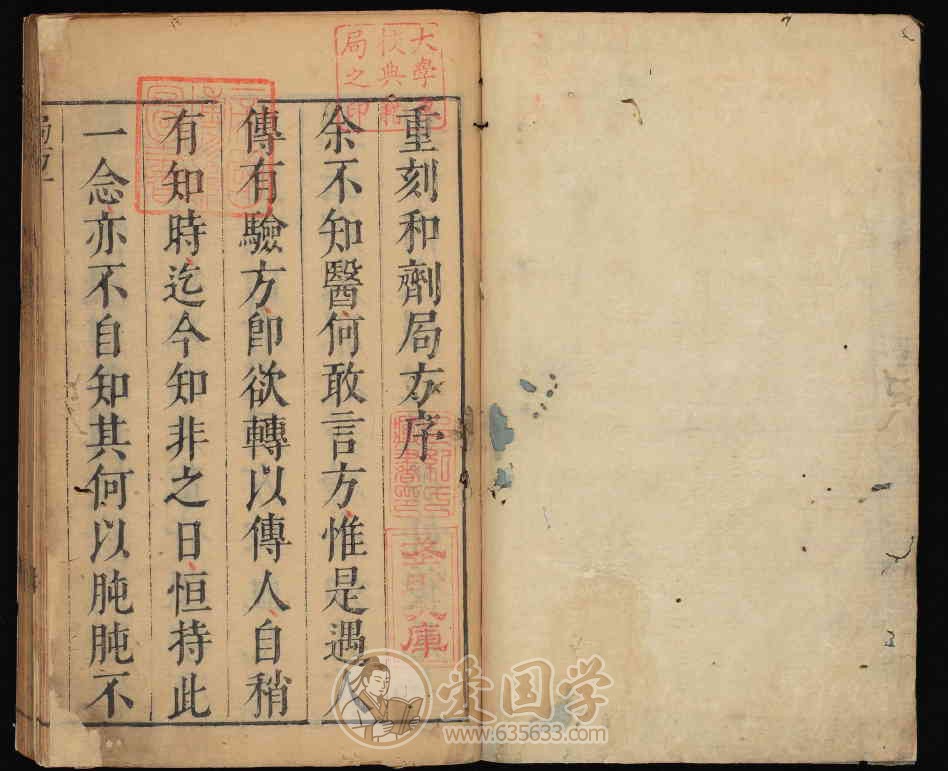 重刻和劑局方序
余不知醫何敢言方惟是遇人
傳有驗方卽欲轉以傳人自稍
有知時迄今知非之日恒持此
一念亦不自知其何以肫肫不
大學
典
局之印
庫
爱国学
www.635633.com